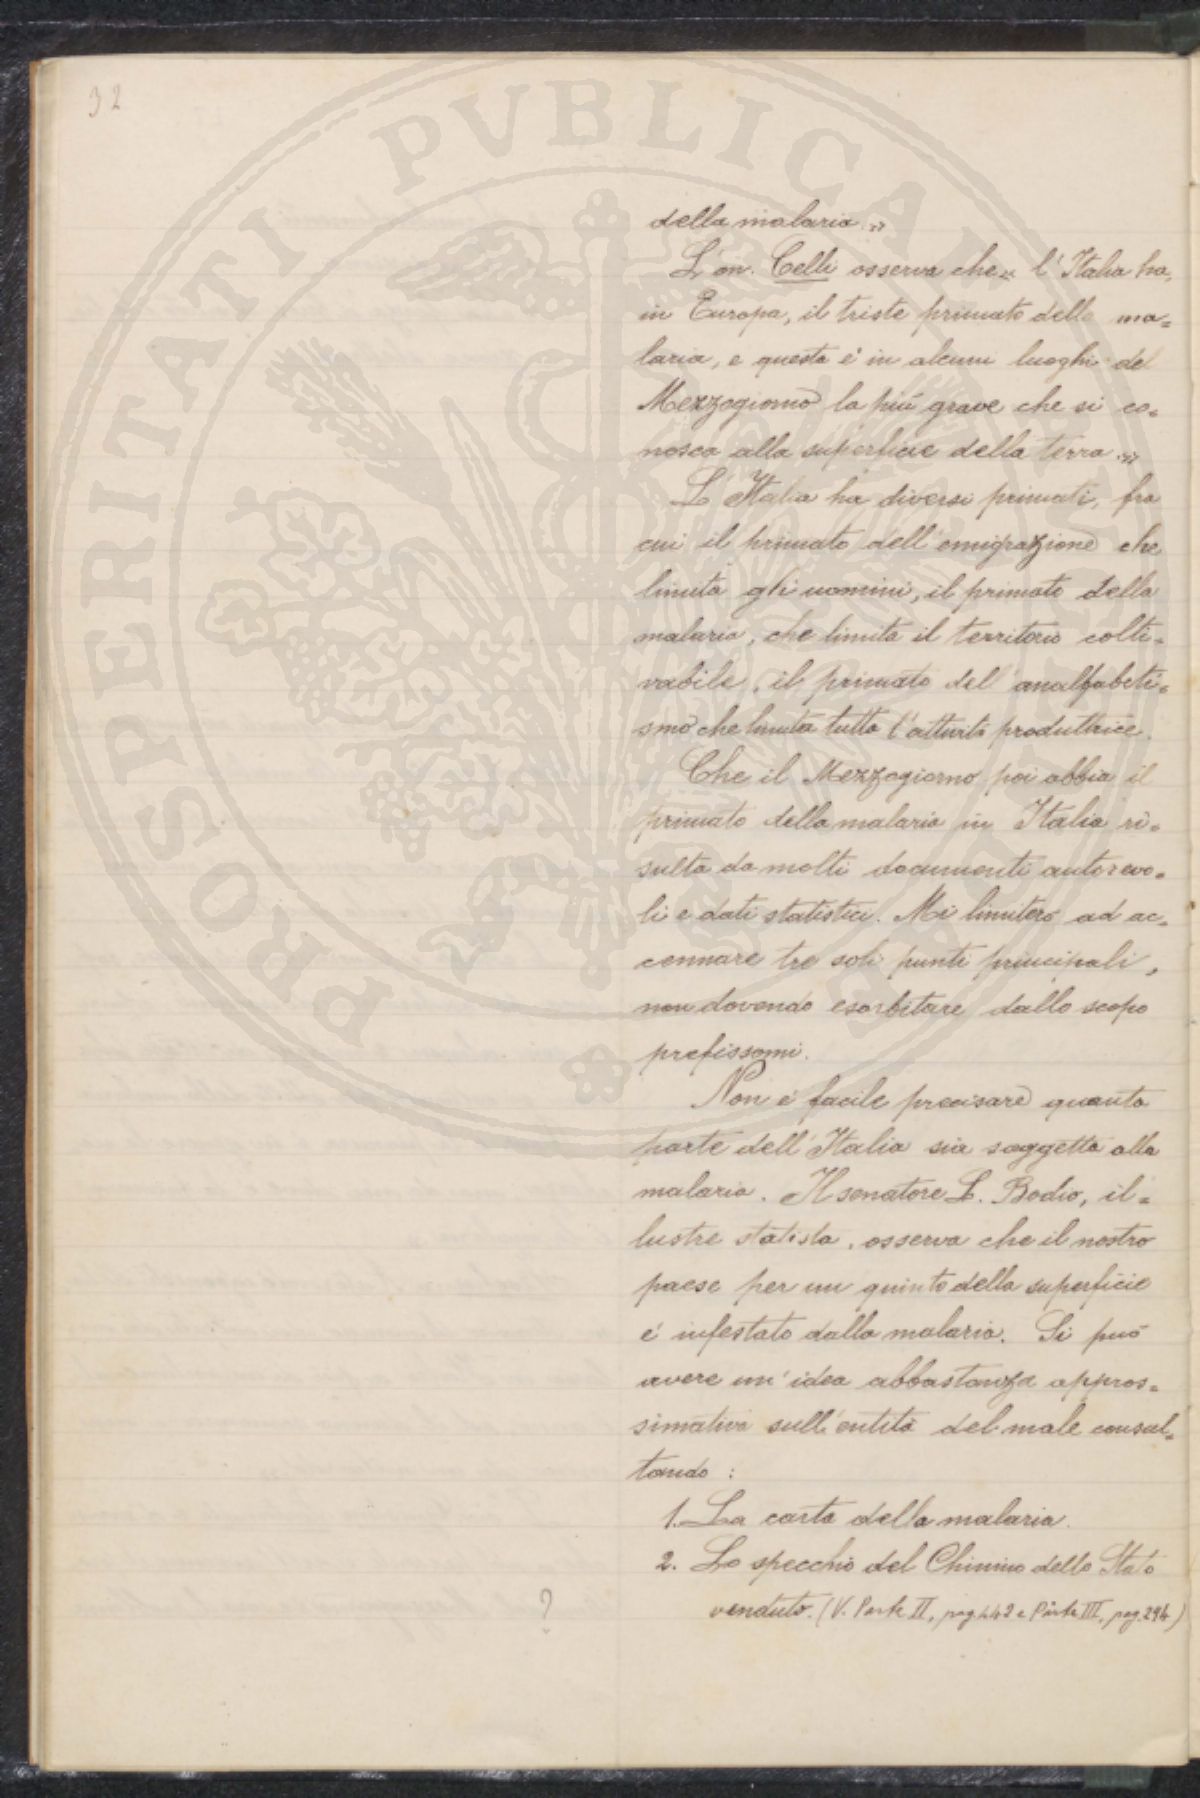 32
PROSPERITATI PVBLICAE
della malaria.»
L'on. Celli osserva che « l'Italia ha,
in Europa, il triste primato della ma=
laria, e questa è in alcuni luoghi del
Mezzogiorno la più grave che si co=
nosca alla superficie della terra.»
L'Italia ha diversi primati, fra
cui il primato dell'emigrazione che
limita gli uomini, il primato della
malaria, che limita il territorio colti=
vabile, il primato dell'analfabeti=
smo che limita tutta l'attività produttrice.
Che il Mezzogiorno poi abbia il
primato della malaria in Italia ri=
sulta da molti documenti autorevo=
li e dati statistici. Mi limiterò ad ac=
cennare tre soli punti principali,
non dovendo esorbitare dallo scopo
prefissomi.
Non è facile precisare quanta
parte dell'Italia sia soggetta alla
malaria. Il senatore L. Bodio, il=
lustre statista, osserva che il nostro
paese per un quinto della superficie
è infestato dalla malaria. Si può
avere un'idea abbastanza appros=
simativa sull'entità del male consul=
tando :
1. La carta della malaria.
2. Lo specchio del Chinino dello Stato
venduto. (V. Parte II, pag. 142 e Parte III, pag. 294)
?